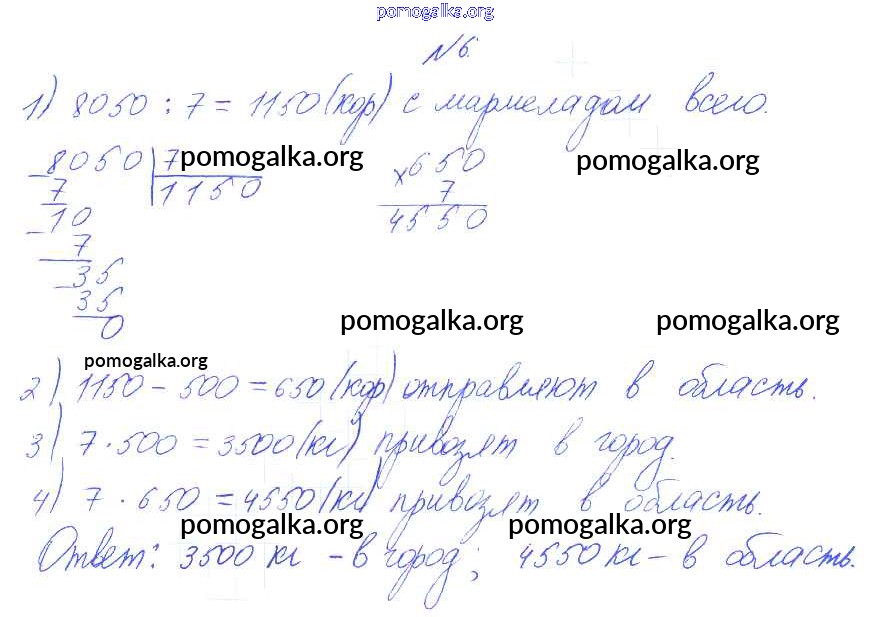 pomogalka.org
№6.
1) 8050 : 7 = 1150 (кор) с мармеладом всего.
8050 | 7 pomogalka.org ×650 pomogalka.org
7 1150 7
10 4550
7
35
35
0
pomogalka.org pomogalka.org
pomogalka.org
2) 1150 - 500 = 650 (кор) отправляют в область.
3) 7 · 500 = 3500 (кг) привозят в город.
4) 7 · 650 = 4550 (кг) привозят в область.
pomogalka.org pomogalka.org
Ответ: 3500 кг - в город; 4550 кг - в область.